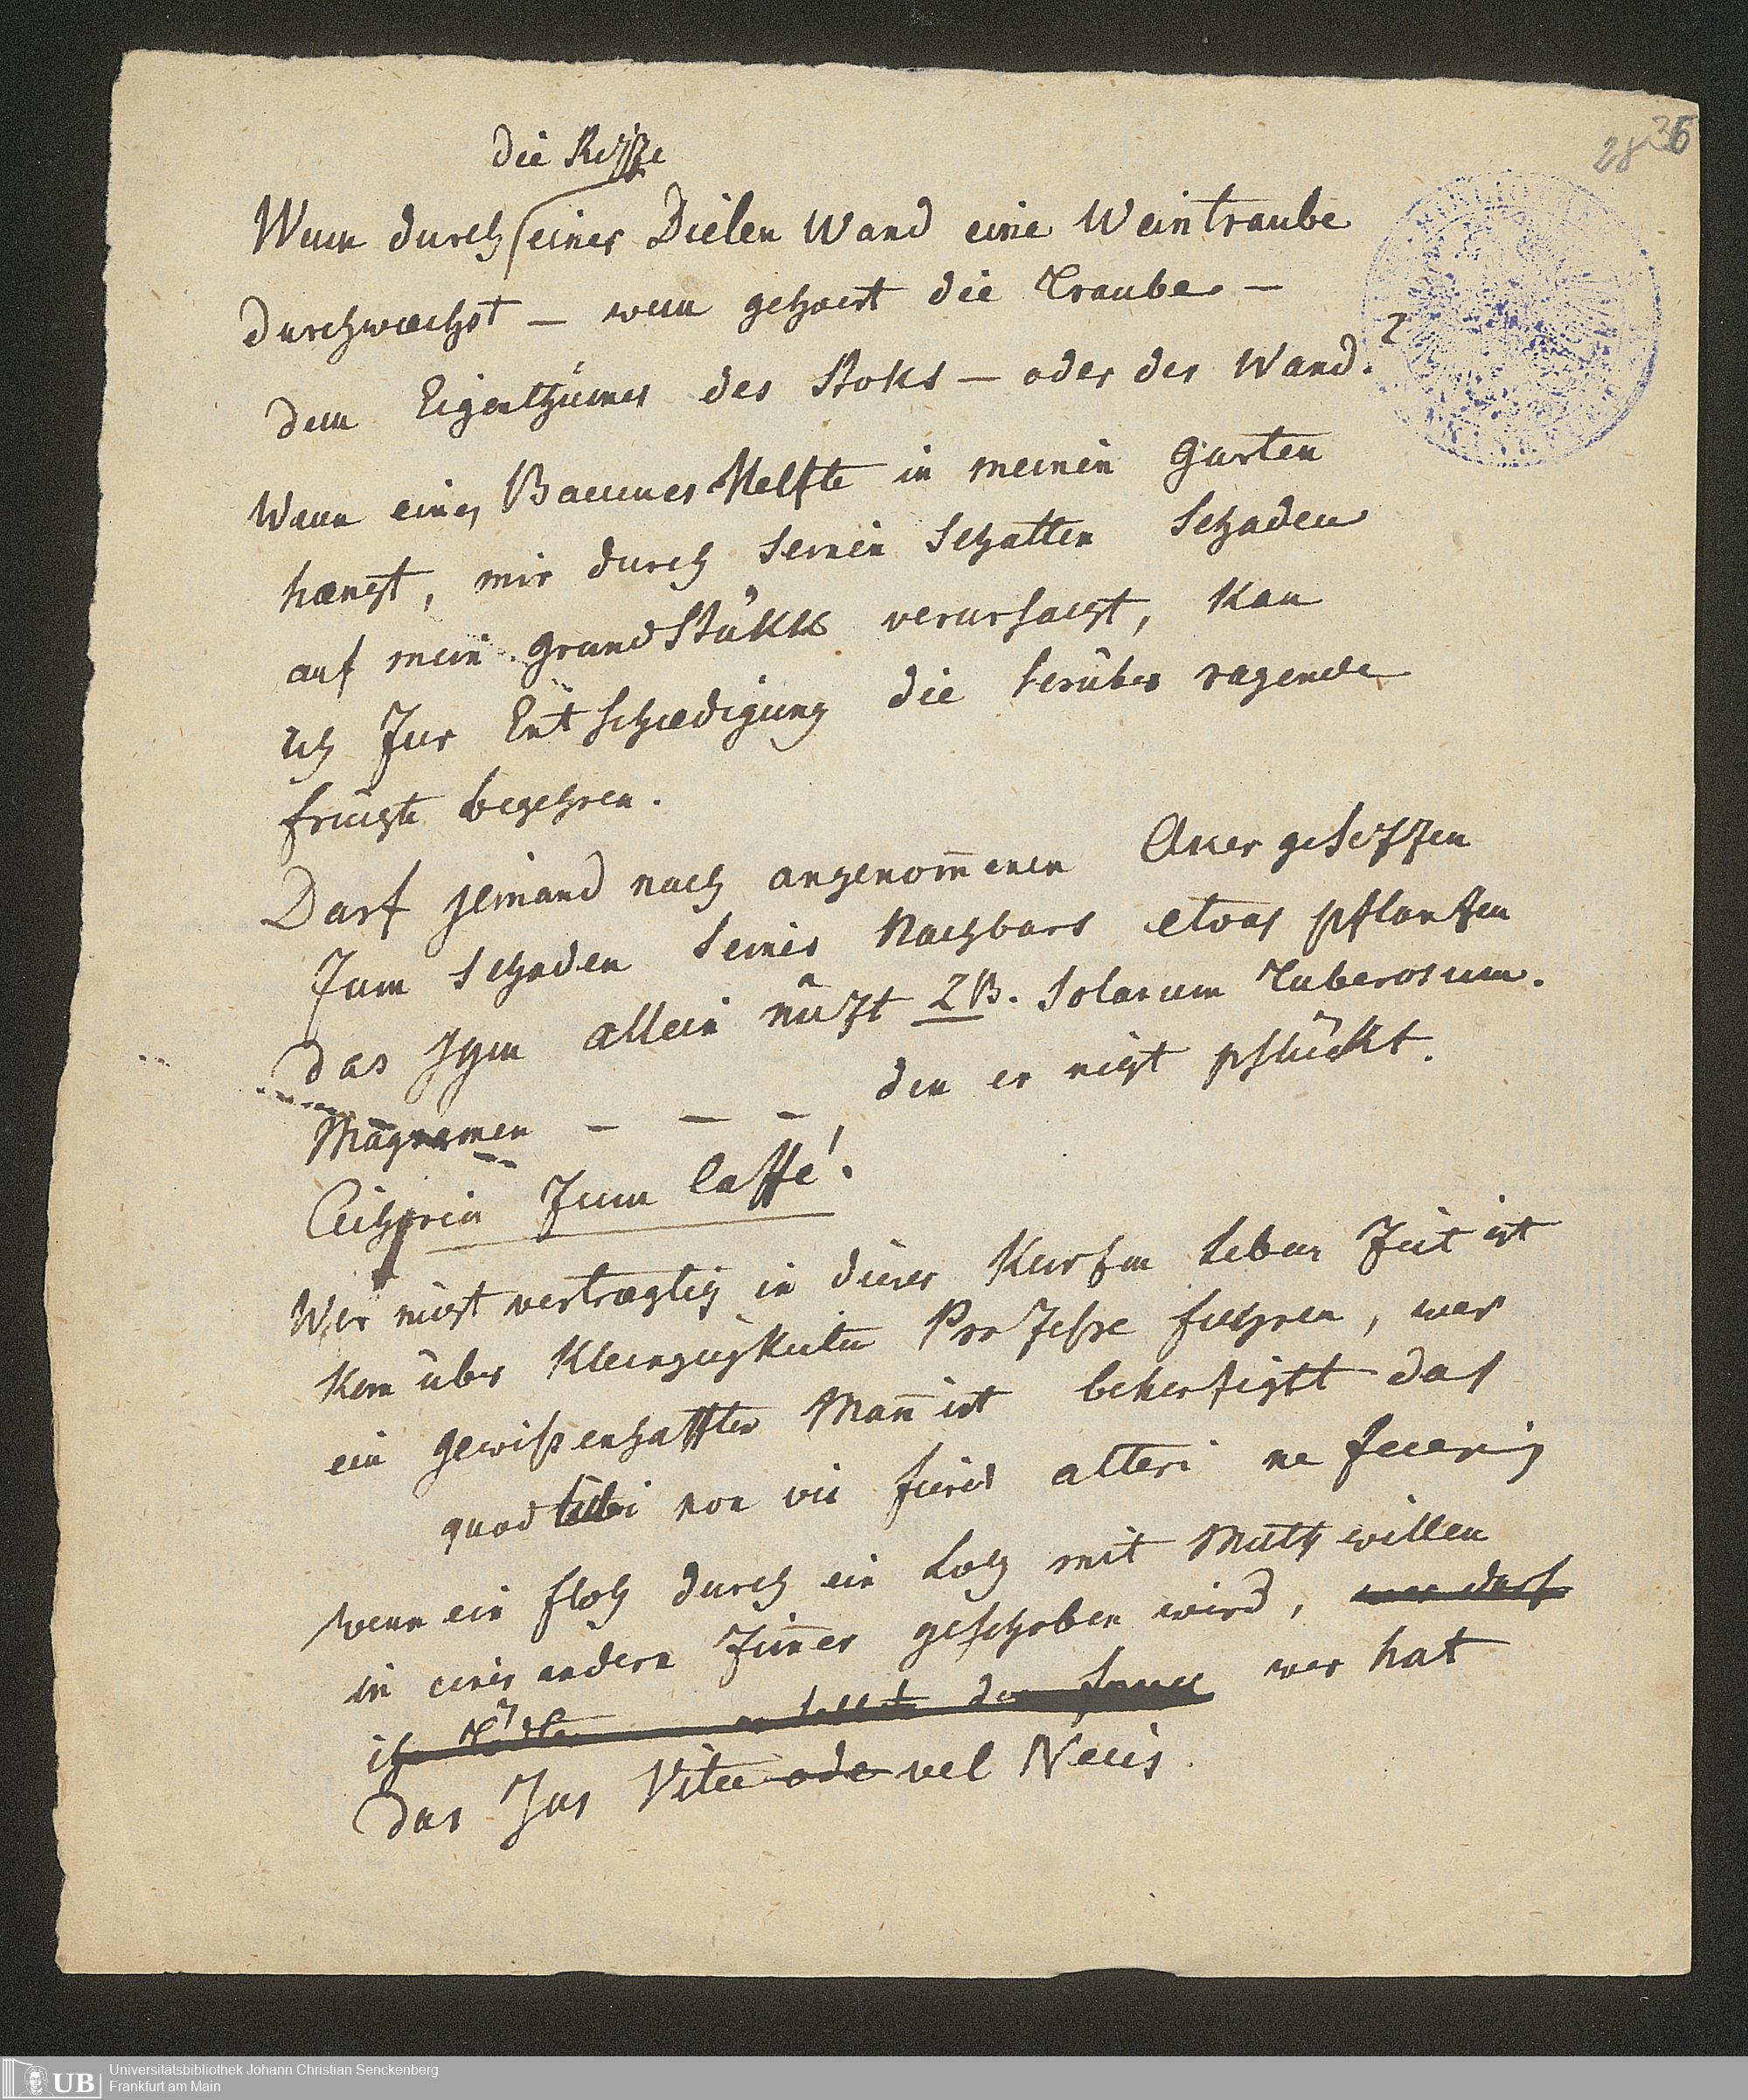 28 36
die Ritze
Wenn durch einer Dielen Wand eine Weintraube
durchwaechst — wem gehoert die Traube —
dem Eigenthümer des Stoks — oder der Wand. ?
Wenn eines Baumes Helfte in meinen Garten
haengt, mir durch seinen Schatten Schaden
auf mein Grundstükk verursacht, kan
ich zur Entschaedigung die herüber ragende
früchte begehren.
Darf jemand nach angenommenen
zum Schaden seines Nachbars etwas pflantzen
das ihm allein nüzt ZB. Solanum Tuberosum.
— — — den er nicht pflückt.
Cichorien zum Caffé.
Wer nicht vertraeglich in dieser kurzen Leben Zeit ist
kan über Kleinigkeiten Prozesse fuehren, wer
ein gewissenhaffter Mañ ist beherzigtt das
quod tibi non vis fieri alteri ne feceris
wenn ein floh durch ein Loch mit Muthwillen
in eines andern Zim̄er geschoben wird, wer darf
ihn tödten wer hat
das Jus Vitae ode vel Necis.
UB
Universitätsbibliothek Johann Christian Senckenberg
Frankfurt am Main